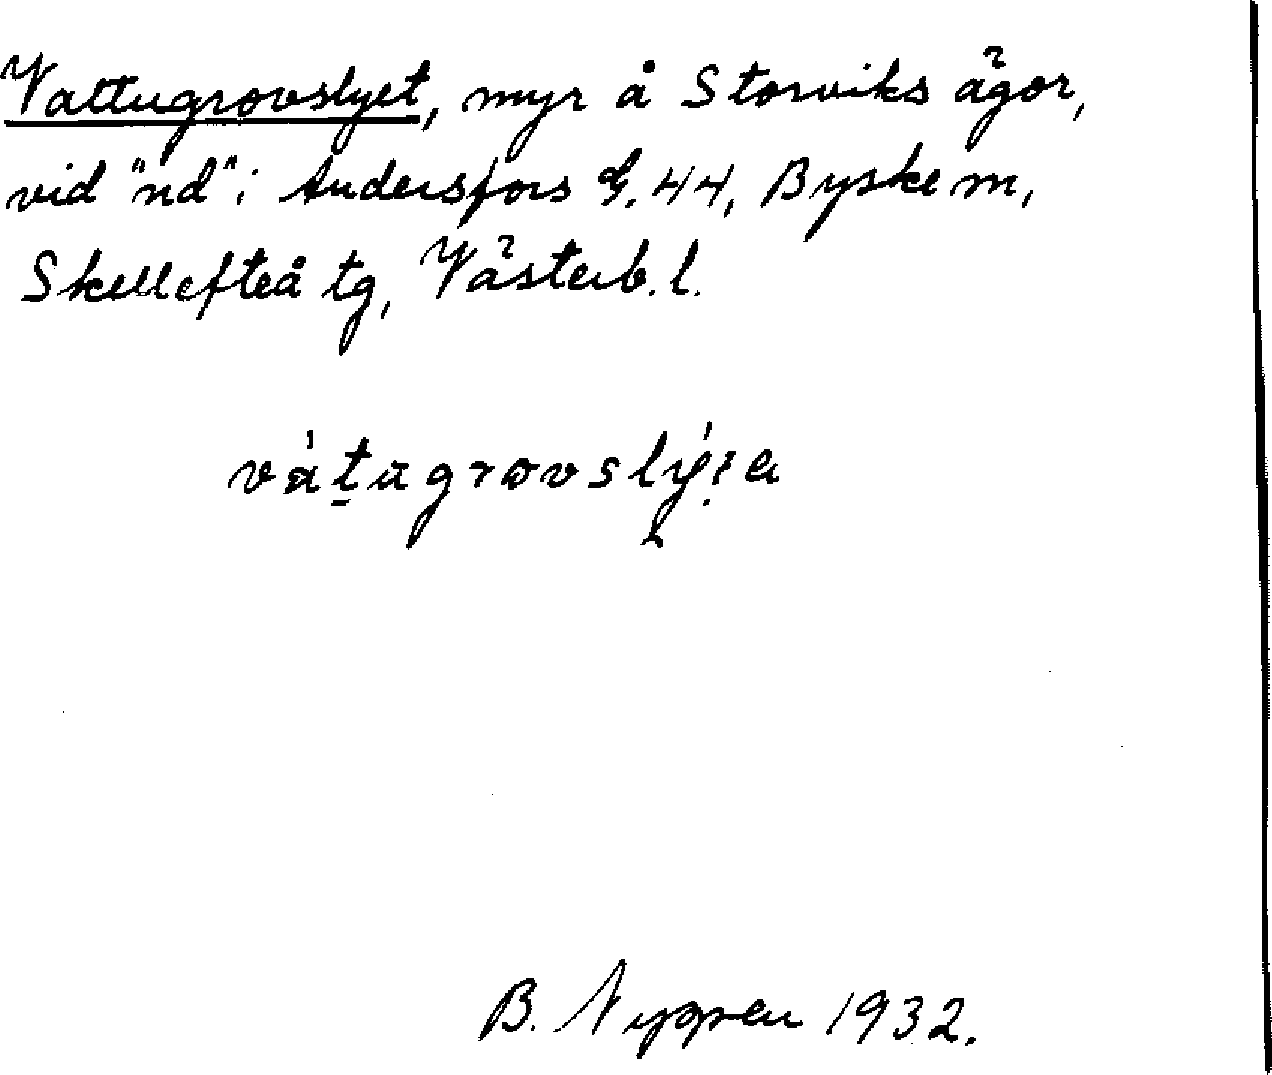 Vattugrovslyet, myr å Storviks ägor,
vid "nd" i Andersfors G. 44, Byske m,
Skellefteå tg, Västerb. l.
B. Nygren 1932.